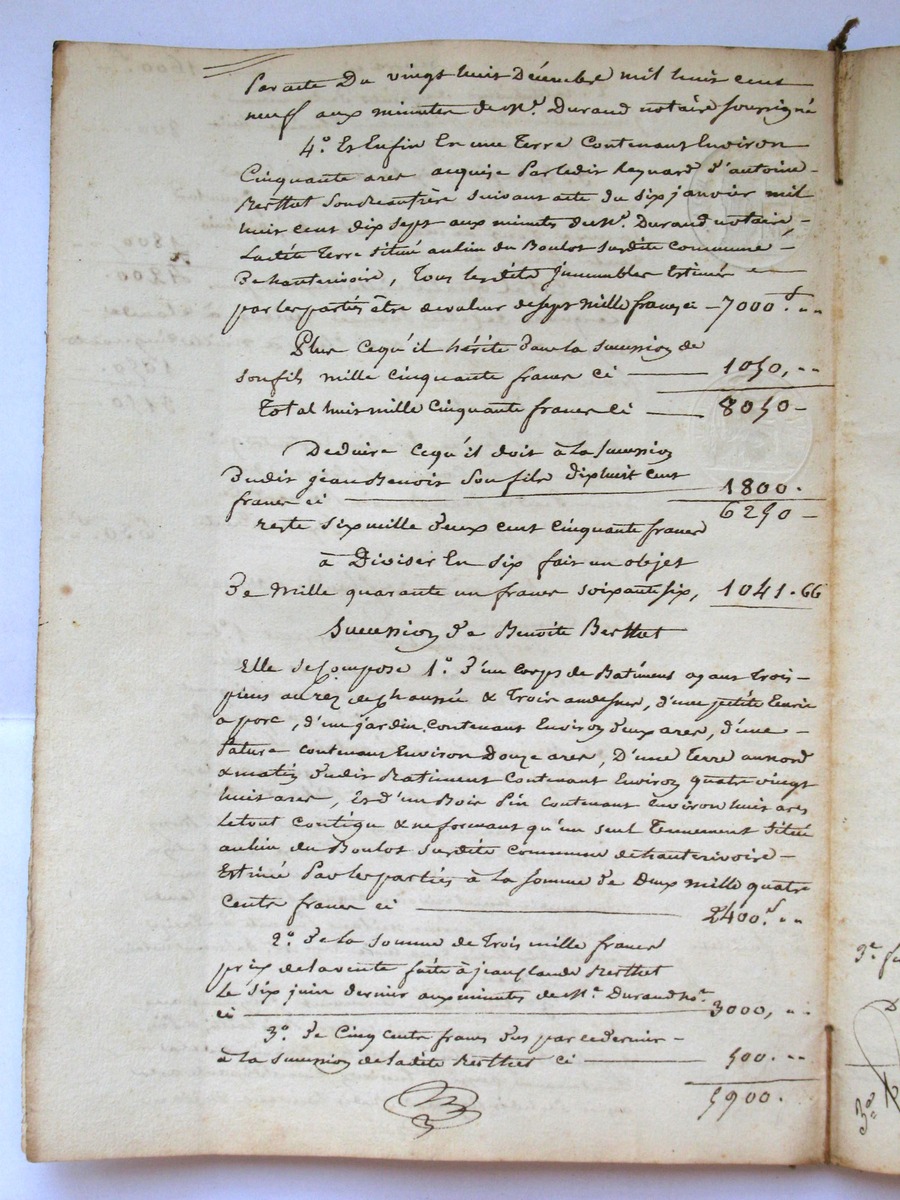 Par acte Du vingt huit Décembre mil huit cent
neuf aux minutes de Me. Durand notaire soussigné
4°. Et Enfin En une Terre Contenant Environ
Cinquante ares acquise Par ledit Reynard d'antoine
Berthet son beaufrère suivant acte du six janvier mil
huit cent dix sept aux minutes du Me. Durand notaire,
Ladite Terre située au lieu du Boulot susdite Commune
De hauterivoire, Tous lesdits Immeubles Estimés
par les parties être de valeur de sept mille francs ci - 7000.f ..
Plus ce qu'il hérite dans la succession de
son fils mille cinquante francs ci 1050, ..
Total huit mille cinquante francs ci 8050 -
Déduire ce qu'il doit à la succession
dudit jean Benoit son fils dixhuit cent
francs ci 1800.
reste six mille deux cent cinquante francs 6250 -
à Diviser En six fait un objet
De Mille quarante un francs soixante six, 1041.66
Succession de Benoite Berthet
Elle se Compose 1°. d'un corps de Batiment ayant Trois
pièces au rez de chaussée & Trois au dessus, d'une petite Ecurie
a porc, d'un jardin contenant Environ deux ares, d'une
Pature contenant Environ Douze ares, D'une Terre au nord
& matin dudit Batiment Contenant Environ quatre vingt
huit ares, Et d'un Bois Pin contenant Environ huit ares
le tout contigu & ne formant qu'un seul Tennement situé
au lieu du Boulot susdite commune de hauterivoire -
Estimé Par les parties à la somme de Deux mille quatre
cents francs ci 2400.f ..
2°. de la somme de Trois mille francs
prix de la vente faite à jean Claude Berthet
le six juin dernier aux minutes de Me. Durand Nre.
ci 3000, ..
3°. de Cinq cents francs dus par ce dernier -
à la succession de ladite Berthet ci 500. ..
5900.